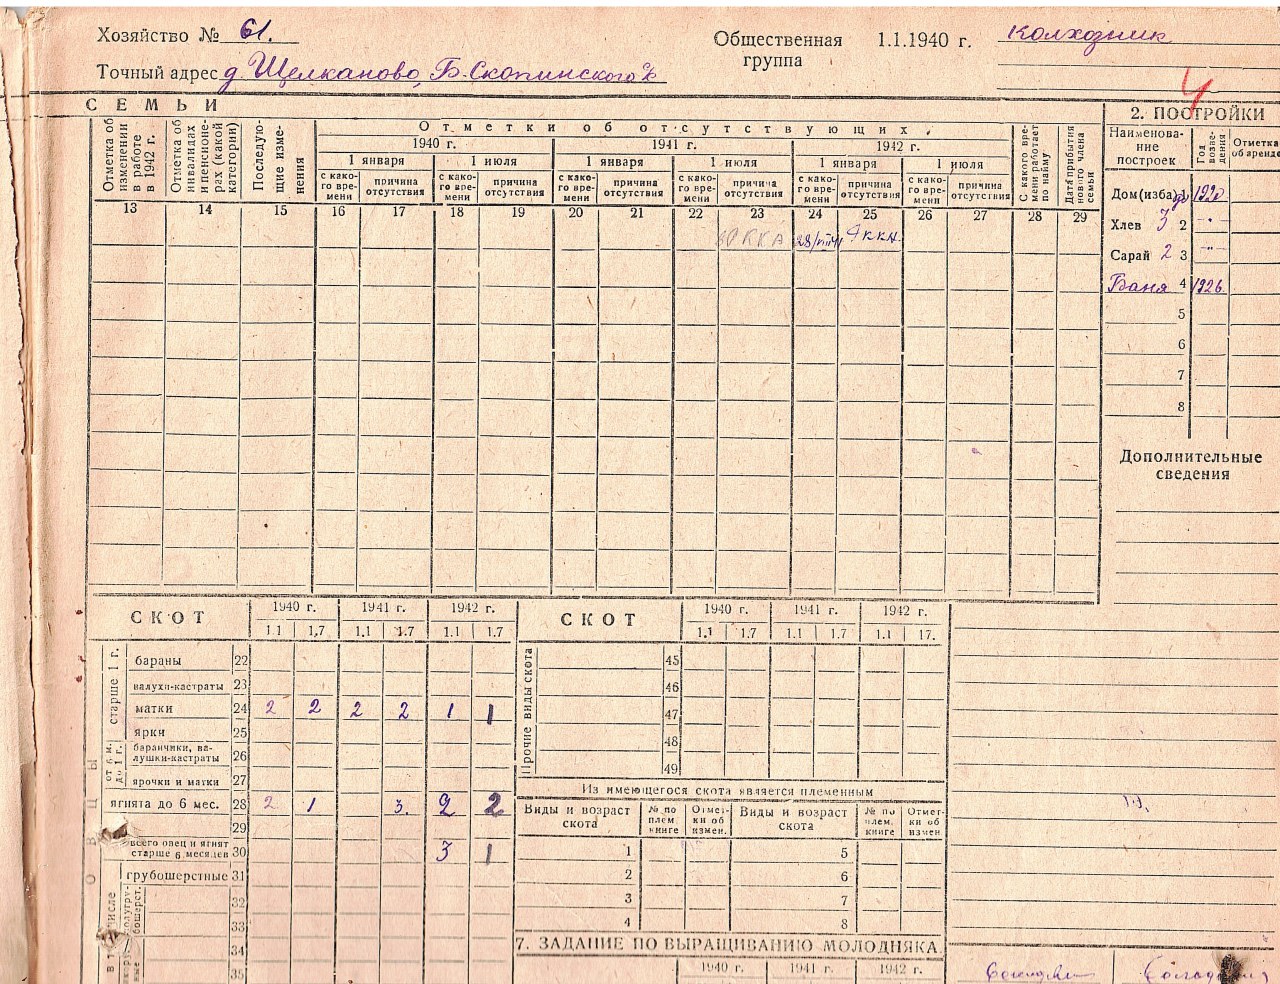 Хозяйство № 61.
Точный адрес д. Щелканово, Б. Скопинского
Общественная группа 1.1.1940 г. колхозник
4
СЕМЬИ
Отметка об изменении в работе в 1942 г.
Отметка об инвалидах и пенсионерах (какой категории)
Последующие изменения
Отметки об отсутствующих
1940 г. 1941 г. 1942 г.
1 января 1 июля 1 января 1 июля 1 января 1 июля
с какого времени причина отсутствия с какого времени причина отсутствия с какого времени причина отсутствия с какого времени причина отсутствия с какого времени причина отсутствия с какого времени причина отсутствия
С какого времени работает по найму
Дата прибытия нового члена семьи
13 14 15 16 17 18 19 20 21 22 23 24 25 26 27 28 29
РККА РККА
2. ПОСТРОЙКИ
Наименование построек Год возведения Отметка об аренде
Дом (изба) 1 1920
Хлев 3 2 -"-
Сарай 2 3 -"-
Баня 4 1926
5
6
7
8
Дополнительные сведения
СКОТ 1940 г. 1941 г. 1942 г.
1.1 1.7 1.1 1.7 1.1 1.7
старше 1 г.
бараны 22
валухи-кастраты 23
матки 24 2 2 2 2 1 1
ярки 25
от 6 м. до 1 г.
баранчики, валушки-кастраты 26
ярочки и матки 27
ягнята до 6 мес. 28 2 1 3. 2 2
29
всего овец и ягнят старше 6 месяцев 30 3 1
грубошерстные 31
32
33
34
35
ОВЦЫ
СКОТ 1940 г. 1941 г. 1942 г.
1.1 1.7 1.1 1.7 1.1 17.
Прочие виды скота
45
46
47
48
49
Из имеющегося скота является племенным
Виды и возраст скота № по плем. книге Отметки об измен. Виды и возраст скота № по плем. книге Отметки об измен.
1 5
2 6
3 7
4 8
7. ЗАДАНИЕ ПО ВЫРАЩИВАНИЮ МОЛОДНЯКА.
1940 г. 1941 г. 1942 г.